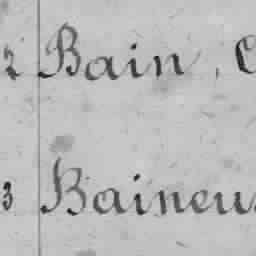 2 Bain, C
3 Baineu